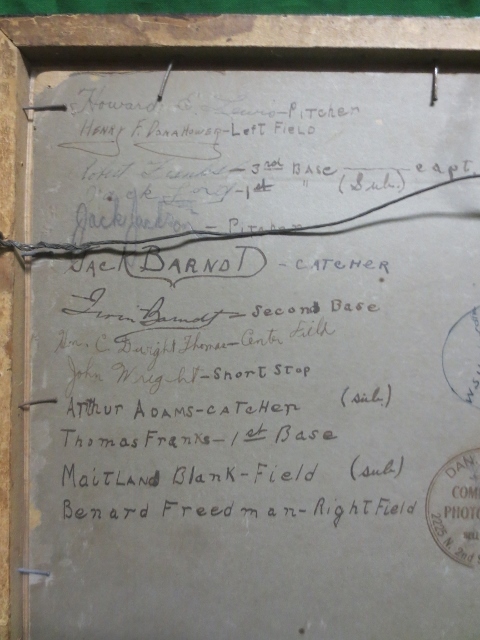 Howard Lewis-Pitcher
Henry F. Donahower-Left Field
Franks-3rd Base capt.
Jack -1st " (Sub.)
Jack Jackson - Pitcher
Jack Barndt - Catcher
Irvin Barndt - Second Base
Wm. C. Dwight Thomas-Center Field
John Wright-Short Stop
Arthur Adams-catcher (sub.)
Thomas Franks-1st Base
Maitland Blank-Field (sub.)
Benard Freedman-Right Field
DAN
COM
PHOTO
2225 N. 2nd